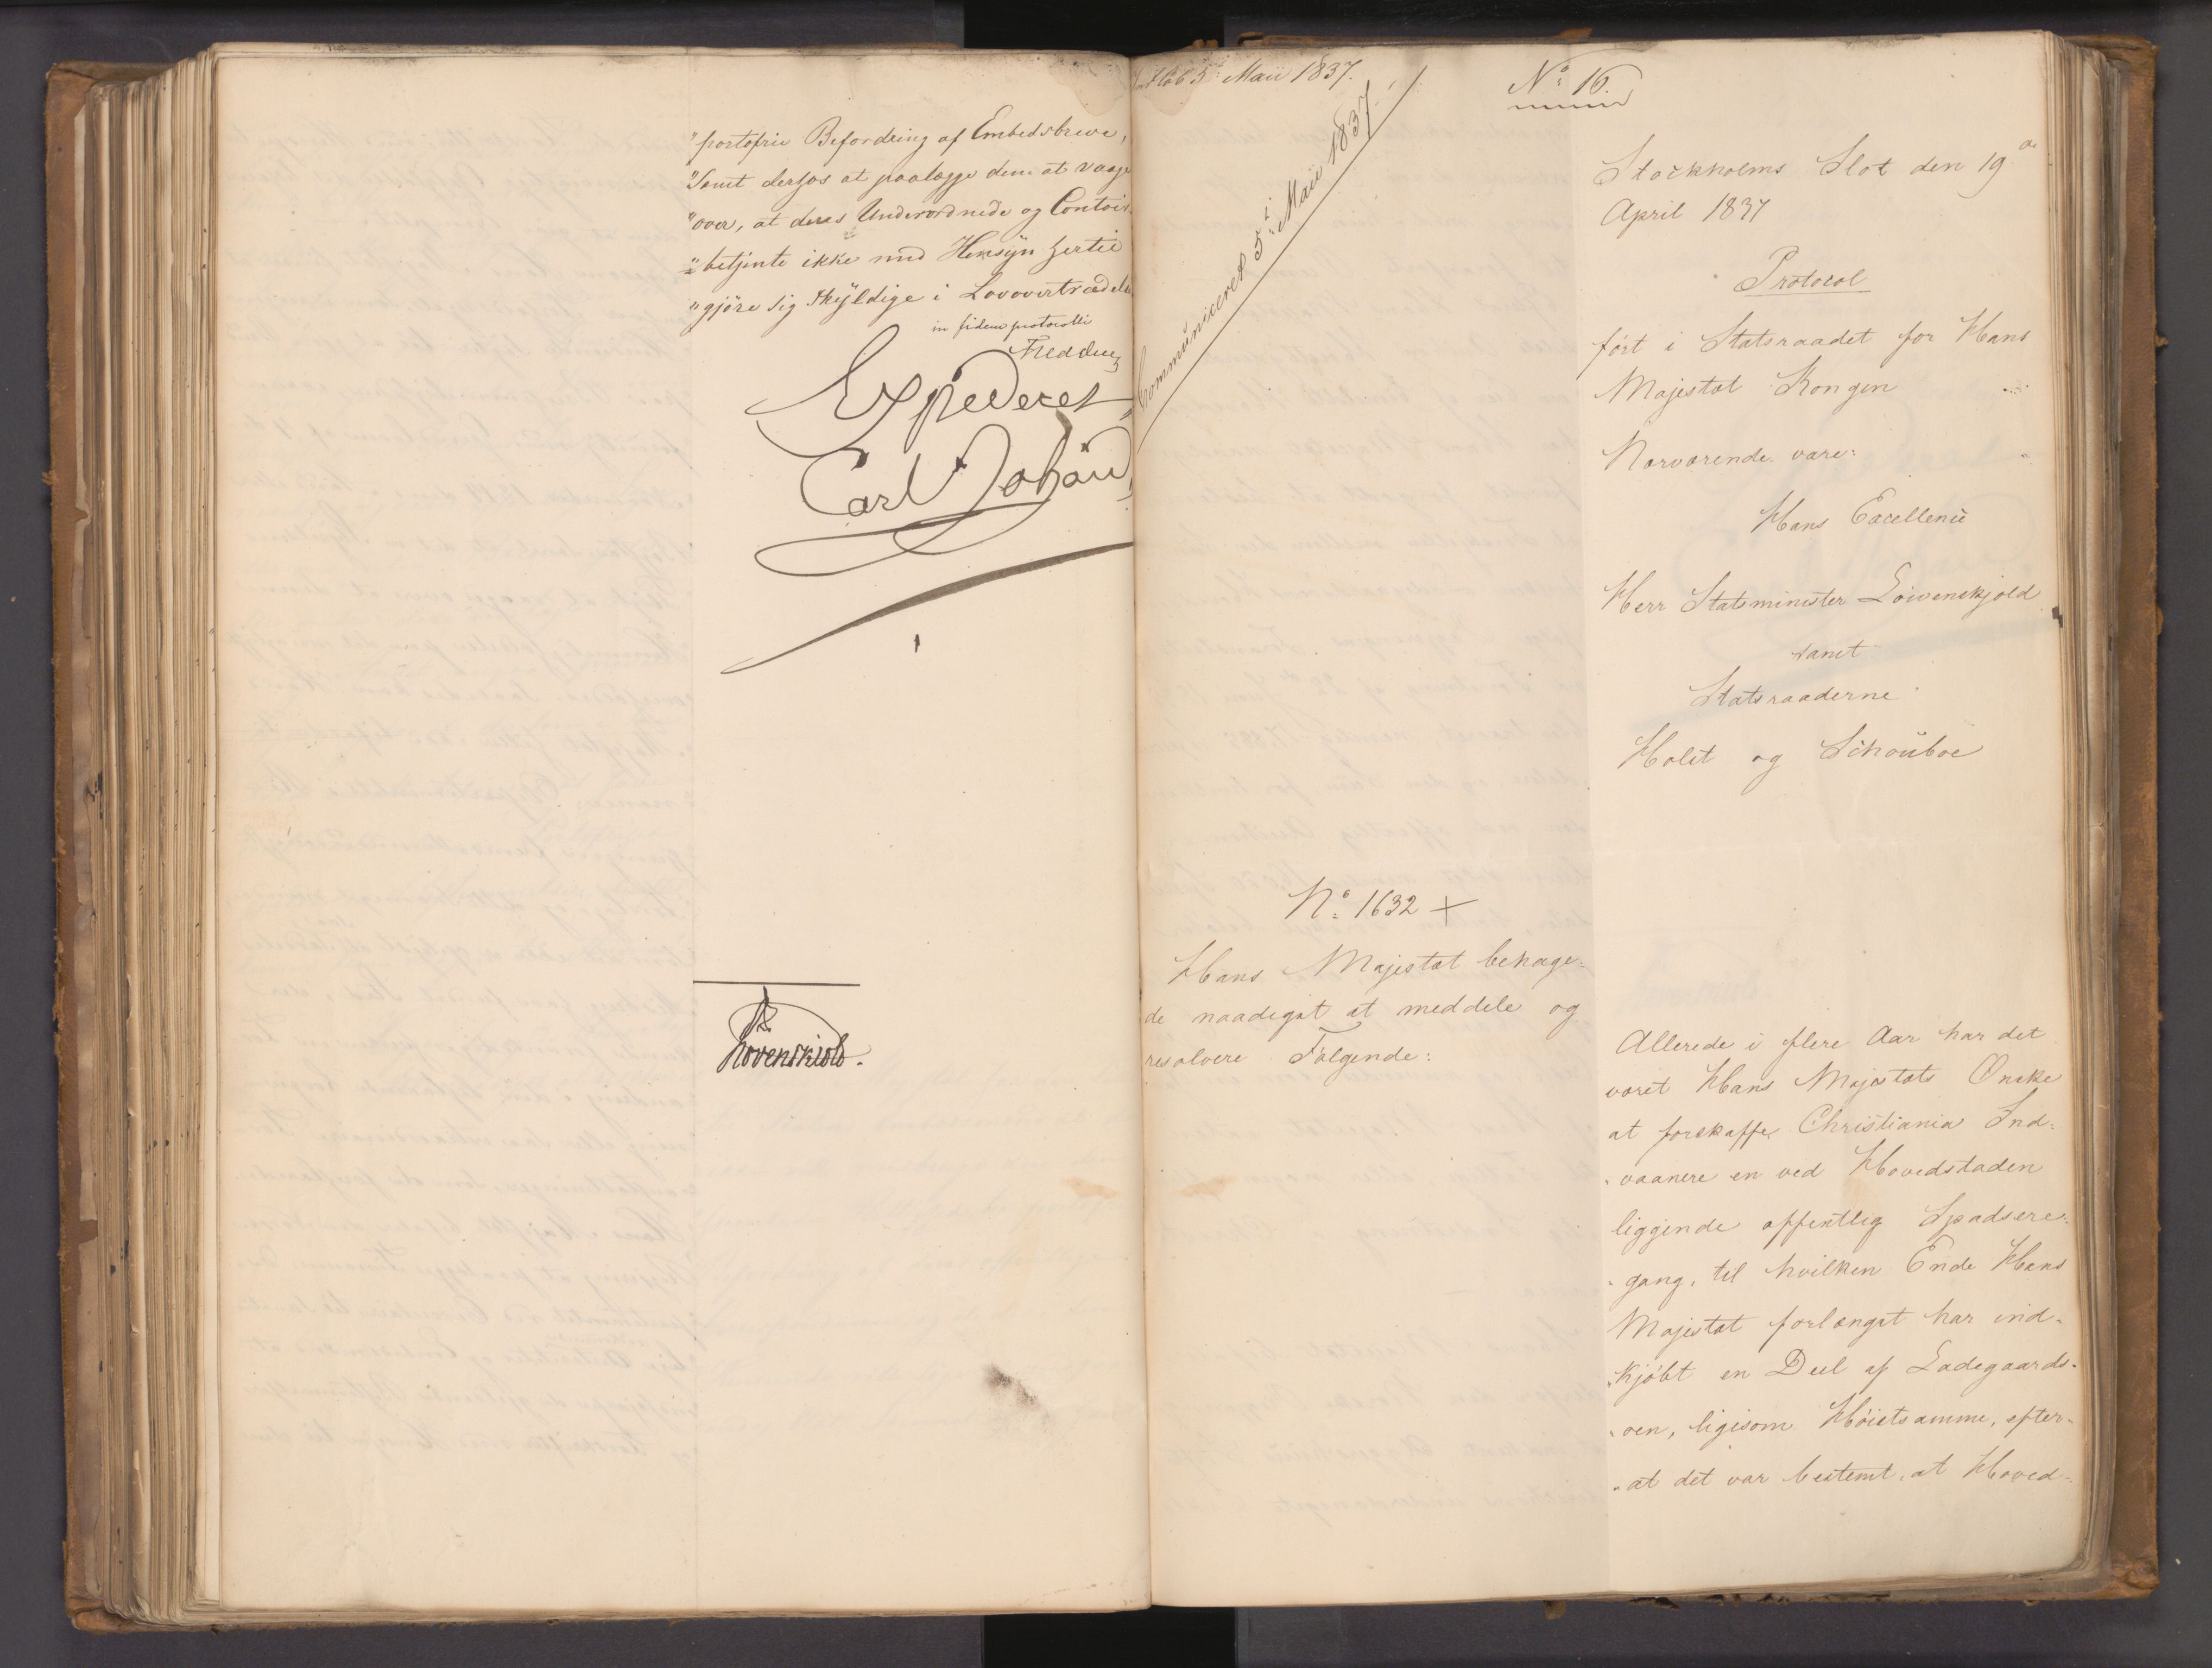 "portofrie Befordring af Embedsbreve,
"samt derhos at paalægge dem at vaage
"over, at deres Underordnede og Contoir-
"betjente ikke med Hensyn hertil
"gjöre sig skÿldige i Lovovertrædelse
in fidem protocolli
Expederet
Carl Johan
Løvenskiold.
5te Maii 1837.
Communiceret 5te Maii 1837.
No 16.
Stockholms Slot den 19de
April 1837
Protocol
fört i Statsraadet for Hans
Majestæt Kongen
Nærværende vare:
Hans Excellence
Herr Statsminister Löwenskjold
samt
Statsraaderne
Holst og Schouboe
No 1632 +
Hans Majestæt behage-
de naadigst at meddele og
resolvere Fölgende:
Allerede i flere Aar har det
været Hans Majestæts Önske
at forskaffe Christiania Ind-
vaanere en ved Hovedstaden
liggende offentlig Spadsere-
gang, til hvilken Ende Hans
Majestæt forlængst har ind-
kjöbt en Deel af Ladegaards-
öen, ligesom Höistsamme, efter-
at det var bestemt, at Hoved-